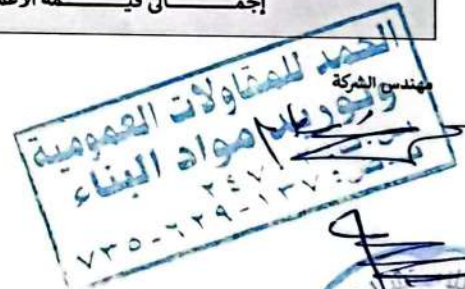 إجمـــالى قيـــــمة
مهندس الشركة
الحمد للمقاولات العمومية
وتوريد مواد البناء
٢٤٧
٧٣٥-٦٢٩-١٣٧